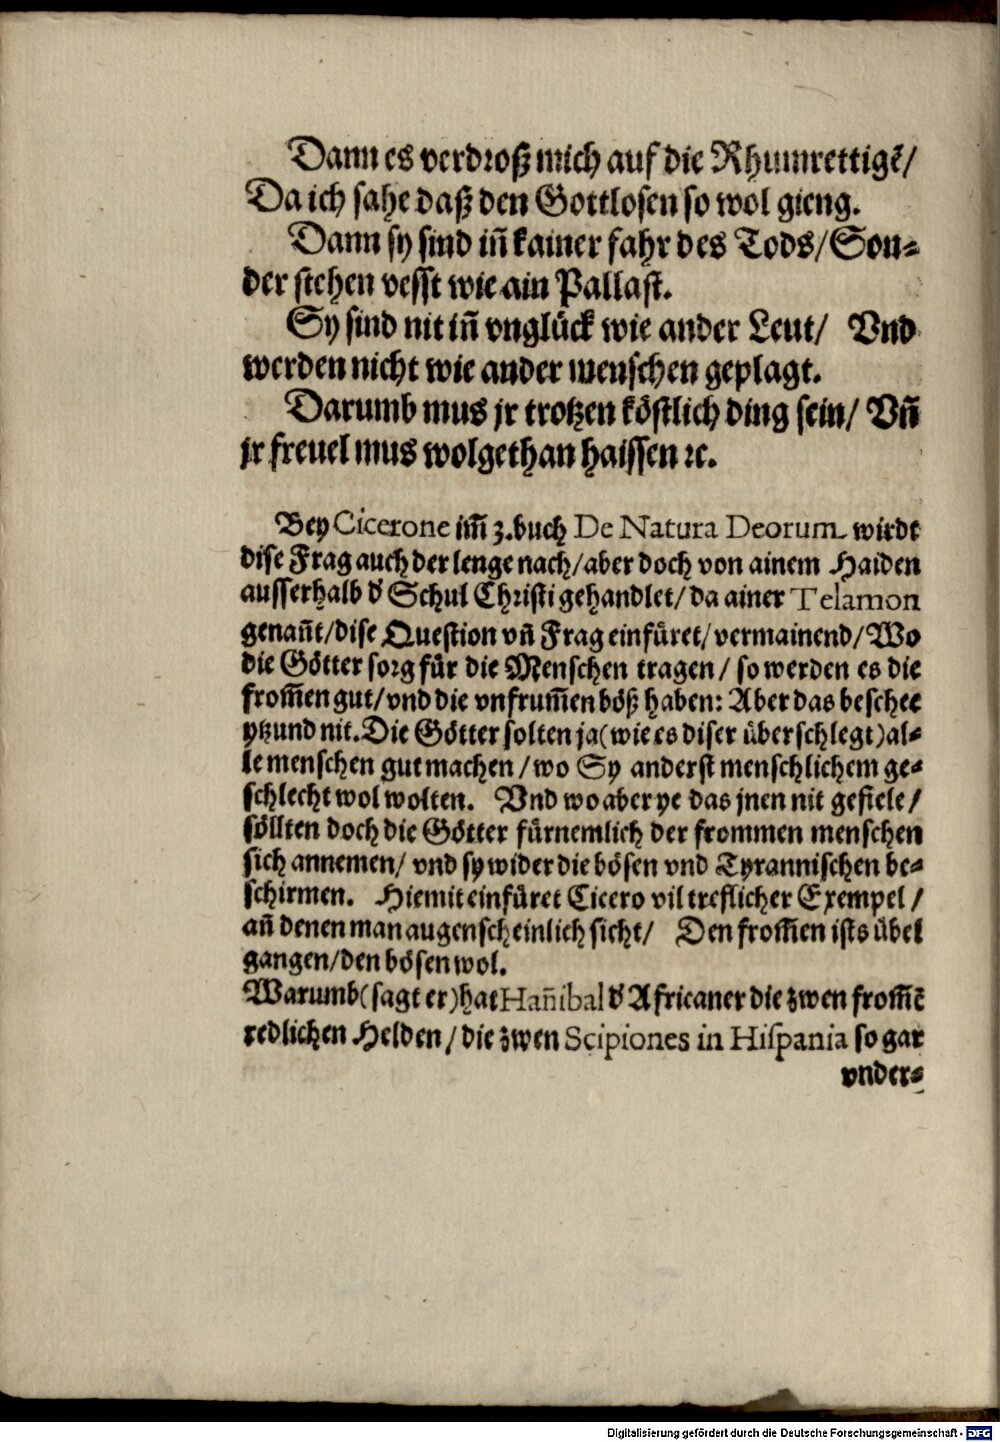 Dann es verdroß mich auf die Rhumrettigē/
Da ich sahe daß den Gottlosen so wol gieng.
Dann sy sind in̄ kainer fahr des Tods/ Son⸗
der stehen vesst wie ain Pallast.
Sy sind nit in̄ vnglück wie ander Leut/ Vnd
werden nicht wie ander menschen geplagt.
Darumb mus jr trotzen köstlich ding sein/ Vn̄
jr freuel mus wolgethan haissen ꝛc.
Bey Cicerone im̄ 3. buch De Natura Deorum wirdt
dise Frag auch der lenge nach/ aber doch von ainem Haiden
ausserhalb d' Schul Christi gehandlet/ da ainer Telamon
genan̄t/ dise Question vn̄ Frag einfüret/ vermainend/ Wo
die Götter sorg für die Menschen tragen/ so werden es die
from̄en gut/ vnd die vnfrum̄en böß haben: Aber das beschee
ytzund nit. Die Götter solten ja (wie es diser überschlegt) al⸗
le menschen gut machen/ wo Sy anderst menschlichem ge⸗
schlecht wol wolten. Vnd wo aber ye das jnen nit gefiele/
söllten doch die Götter fürnemlich der frommen menschen
sich annemen/ vnd sy wider die bösen vnd Tyrannischen be⸗
schirmen. Hiemit einfüret Cicero vil treflicher Exempel/
an̄ denen man augenscheinlich sicht/ Den from̄en ists übel
gangen/ den bösen wol.
Warumb (sagt er) hat Han̄ibal d' Africaner die zwen from̄ē
redlichen Helden/ die zwen Scipiones in Hiſpania so gar
vnder⸗
Digitalisierung gefördert durch die Deutsche Forschungsgemeinschaft - DFG